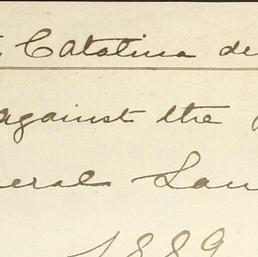 Catalina de
against the
eral Lan
1889